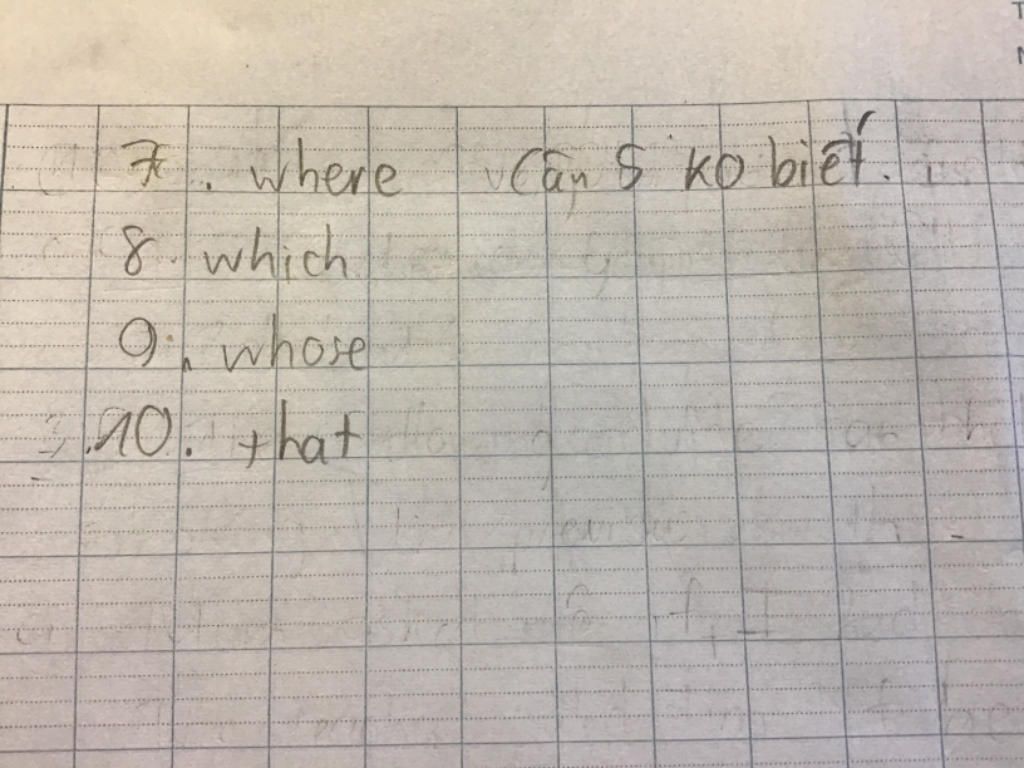 7. where Câu 5 ko biết.
8. which
9. whose
10. that